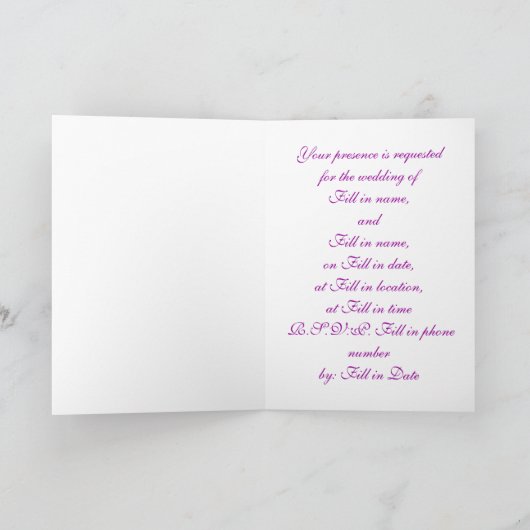 Your presence is requested
for the wedding of
Fill in name,
and
Fill in name,
on Fill in date,
at Fill in location,
at Fill in time
R.S.V.P. Fill in phone
number
by: Fill in Date